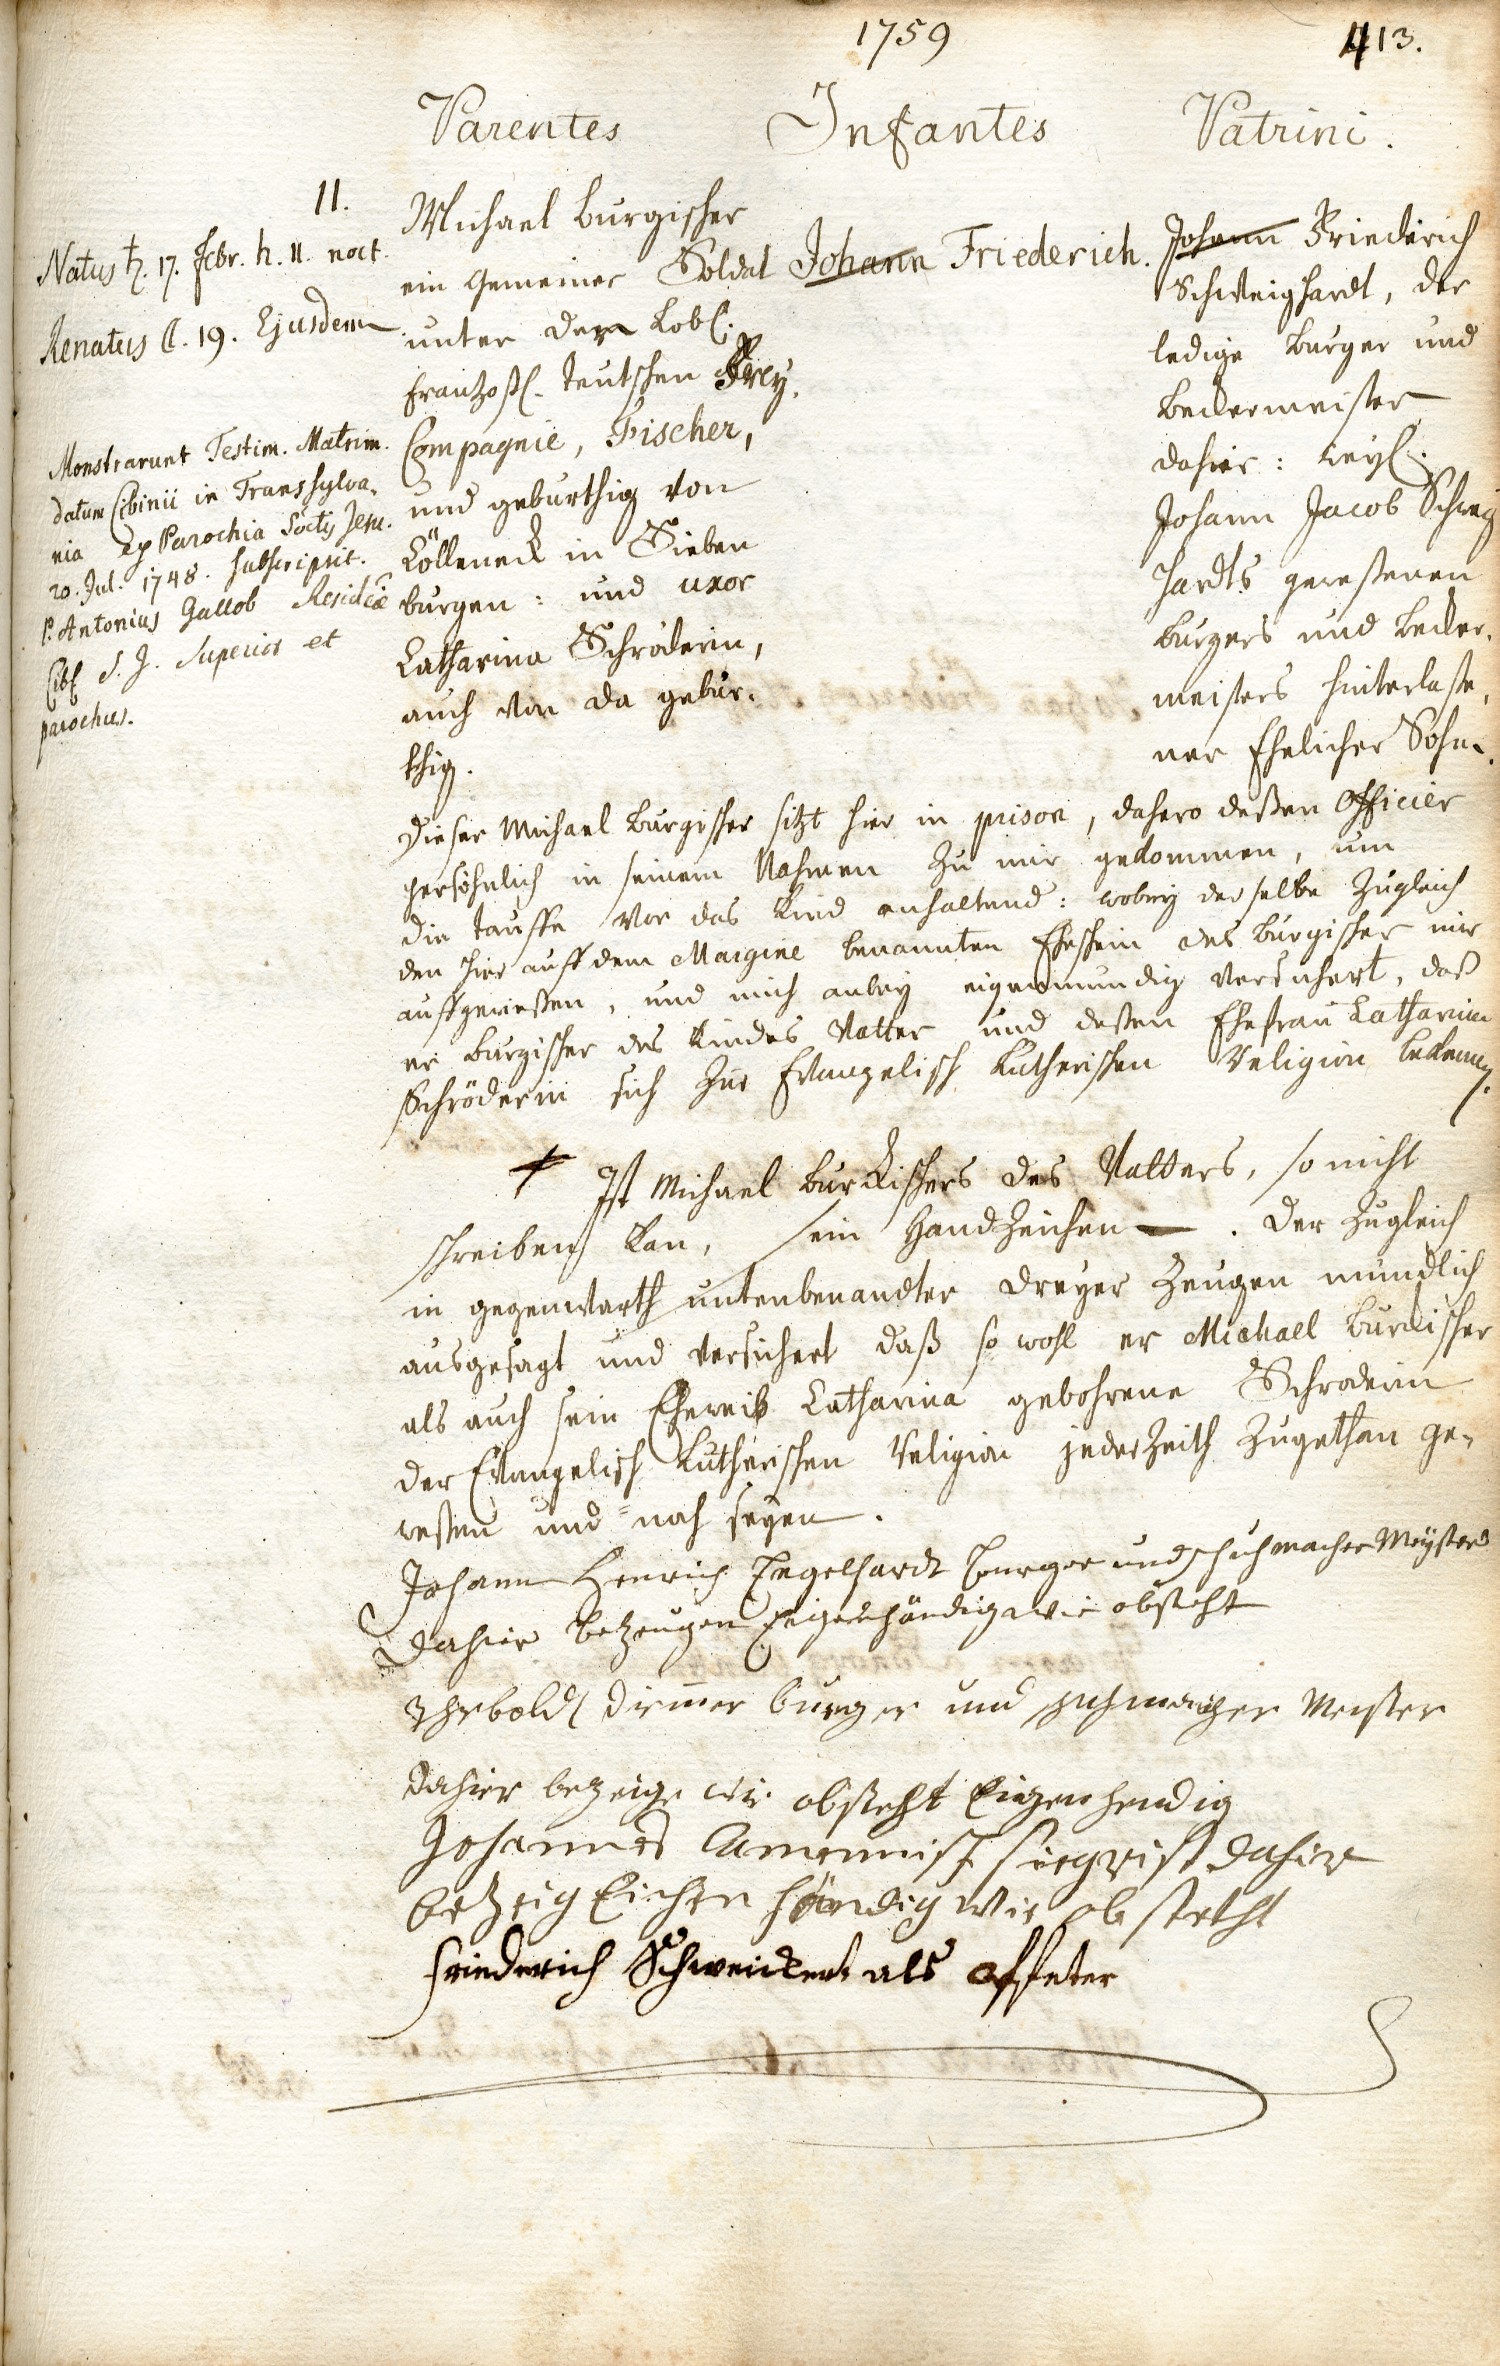 1759
413.
Parentes Infantes Patrini.
11.
Natus ♄. 17. febr. h. 11. noct.
Renatus ☾. 19. Ejusdem
Monstrarunt Testim. Matrim.
datum Cibinii in Transsylva-
nia ex Parochia Soctis Jesu.
20. Jul. 1748. subscripsit.
P. Antonius Gallob Residciæ
Cib S. J. Superior et
parochus.
Michael Burgischer
ein Gemeiner Soldat
unter dem Löbl.
Französl. teutschen Frey-
Compagnie, Fischer,
und gebürthig von
Cölleneck in Sieben
bürgen: und uxor
Catharina Schröderin,
auch von da gebür-
thig.
Johann Friederich.
Johann Friederich
Schweighardt, der
ledige Burger und
Beckermeister
dahier: weyl.
Johann Jacob Schweig
hardts gewesenen
Burgers und Becker-
meisters hinterlaße-
ner Ehelicher Sohn.
Dieser Michael Burgischer sitzt hier in prison, dahero deßen Officier
persöhnlich in seinem Nahmen zu mir gekommen, um
die Tauffe vor das Kind anhaltend: wobey derselbe zugleich
den hier auff dem Margine benannten Ehschein des Burgischer mir
auffgewießen, und mich anbey eigenmündig versichert, daß
er Burgischer des Kindes Vatter und deßen Ehefrau Catharina
Schröderin sich zur Evangelisch Lutherischen Religion bekenne.
+ Ist Michael Burckischers des Vatters, so nicht
schreiben kan, sein Handzeichen —. Der zugleich
in gegenwarth untenbenandter dreyer Zeugen mündlich
ausgesagt und versichert daß so wohl er Michael Burckischer
als auch sein Eheweib Catharina gebohrene Schroderin
der Evangelisch Lutherischen Religion jederzeith zugethan ge-
weßen und noch seyen.
Johann Henrich Engelhardt Burger und schuhmacher Meyster
dahier bezeugen Eigenhändig wie obsteht
burger und schumacher Meister
dahier bezeige wie obsteht Eigenhendig
Johannes siegrist dahier
bezeig Eichen händig wie ob steht
Friederich Schweickert als